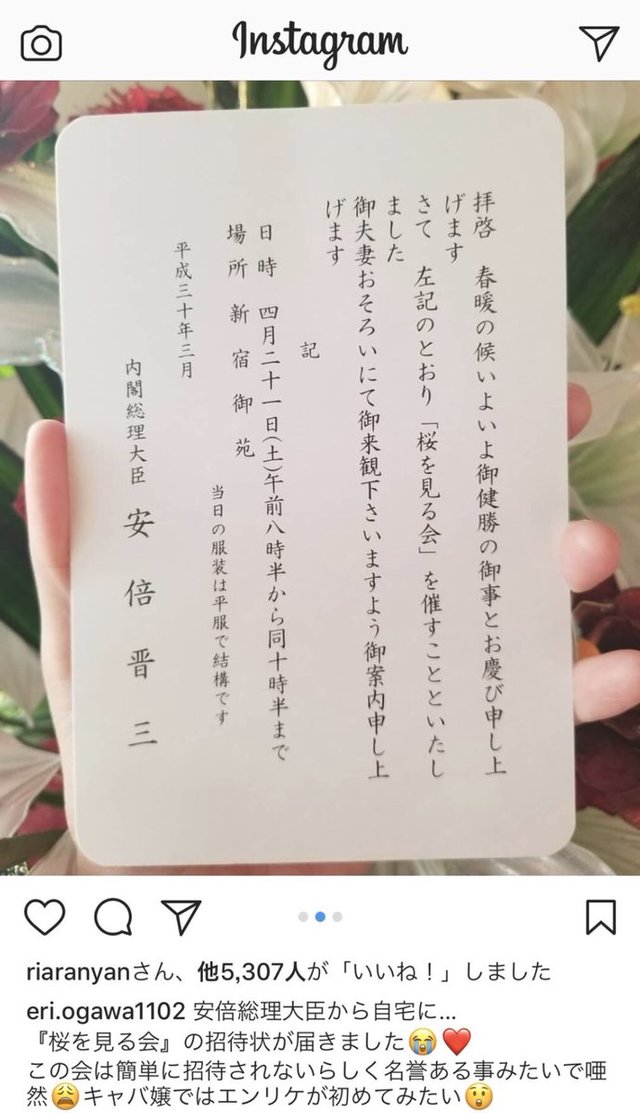 Instagram
拝啓　春暖の候いよいよ御健勝の御事とお慶び申し上
げます
さて　左記のとおり「桜を見る会」を催すことといたし
ました
御夫妻おそろいにて御来観下さいますよう御案内申し上
げます
記
日時　四月二十一日(土)午前八時半から同十時半まで
場所　新宿御苑
当日の服装は平服で結構です
平成三十年三月
内閣総理大臣　安倍晋三
riaranyanさん、他5,307人が「いいね！」しました
eri.ogawa1102 安倍総理大臣から自宅に...
『桜を見る会』の招待状が届きました😭❤️
この会は簡単に招待されないらしく名誉ある事みたいで唖
然😩キャバ嬢ではエンリケが初めてみたい😲